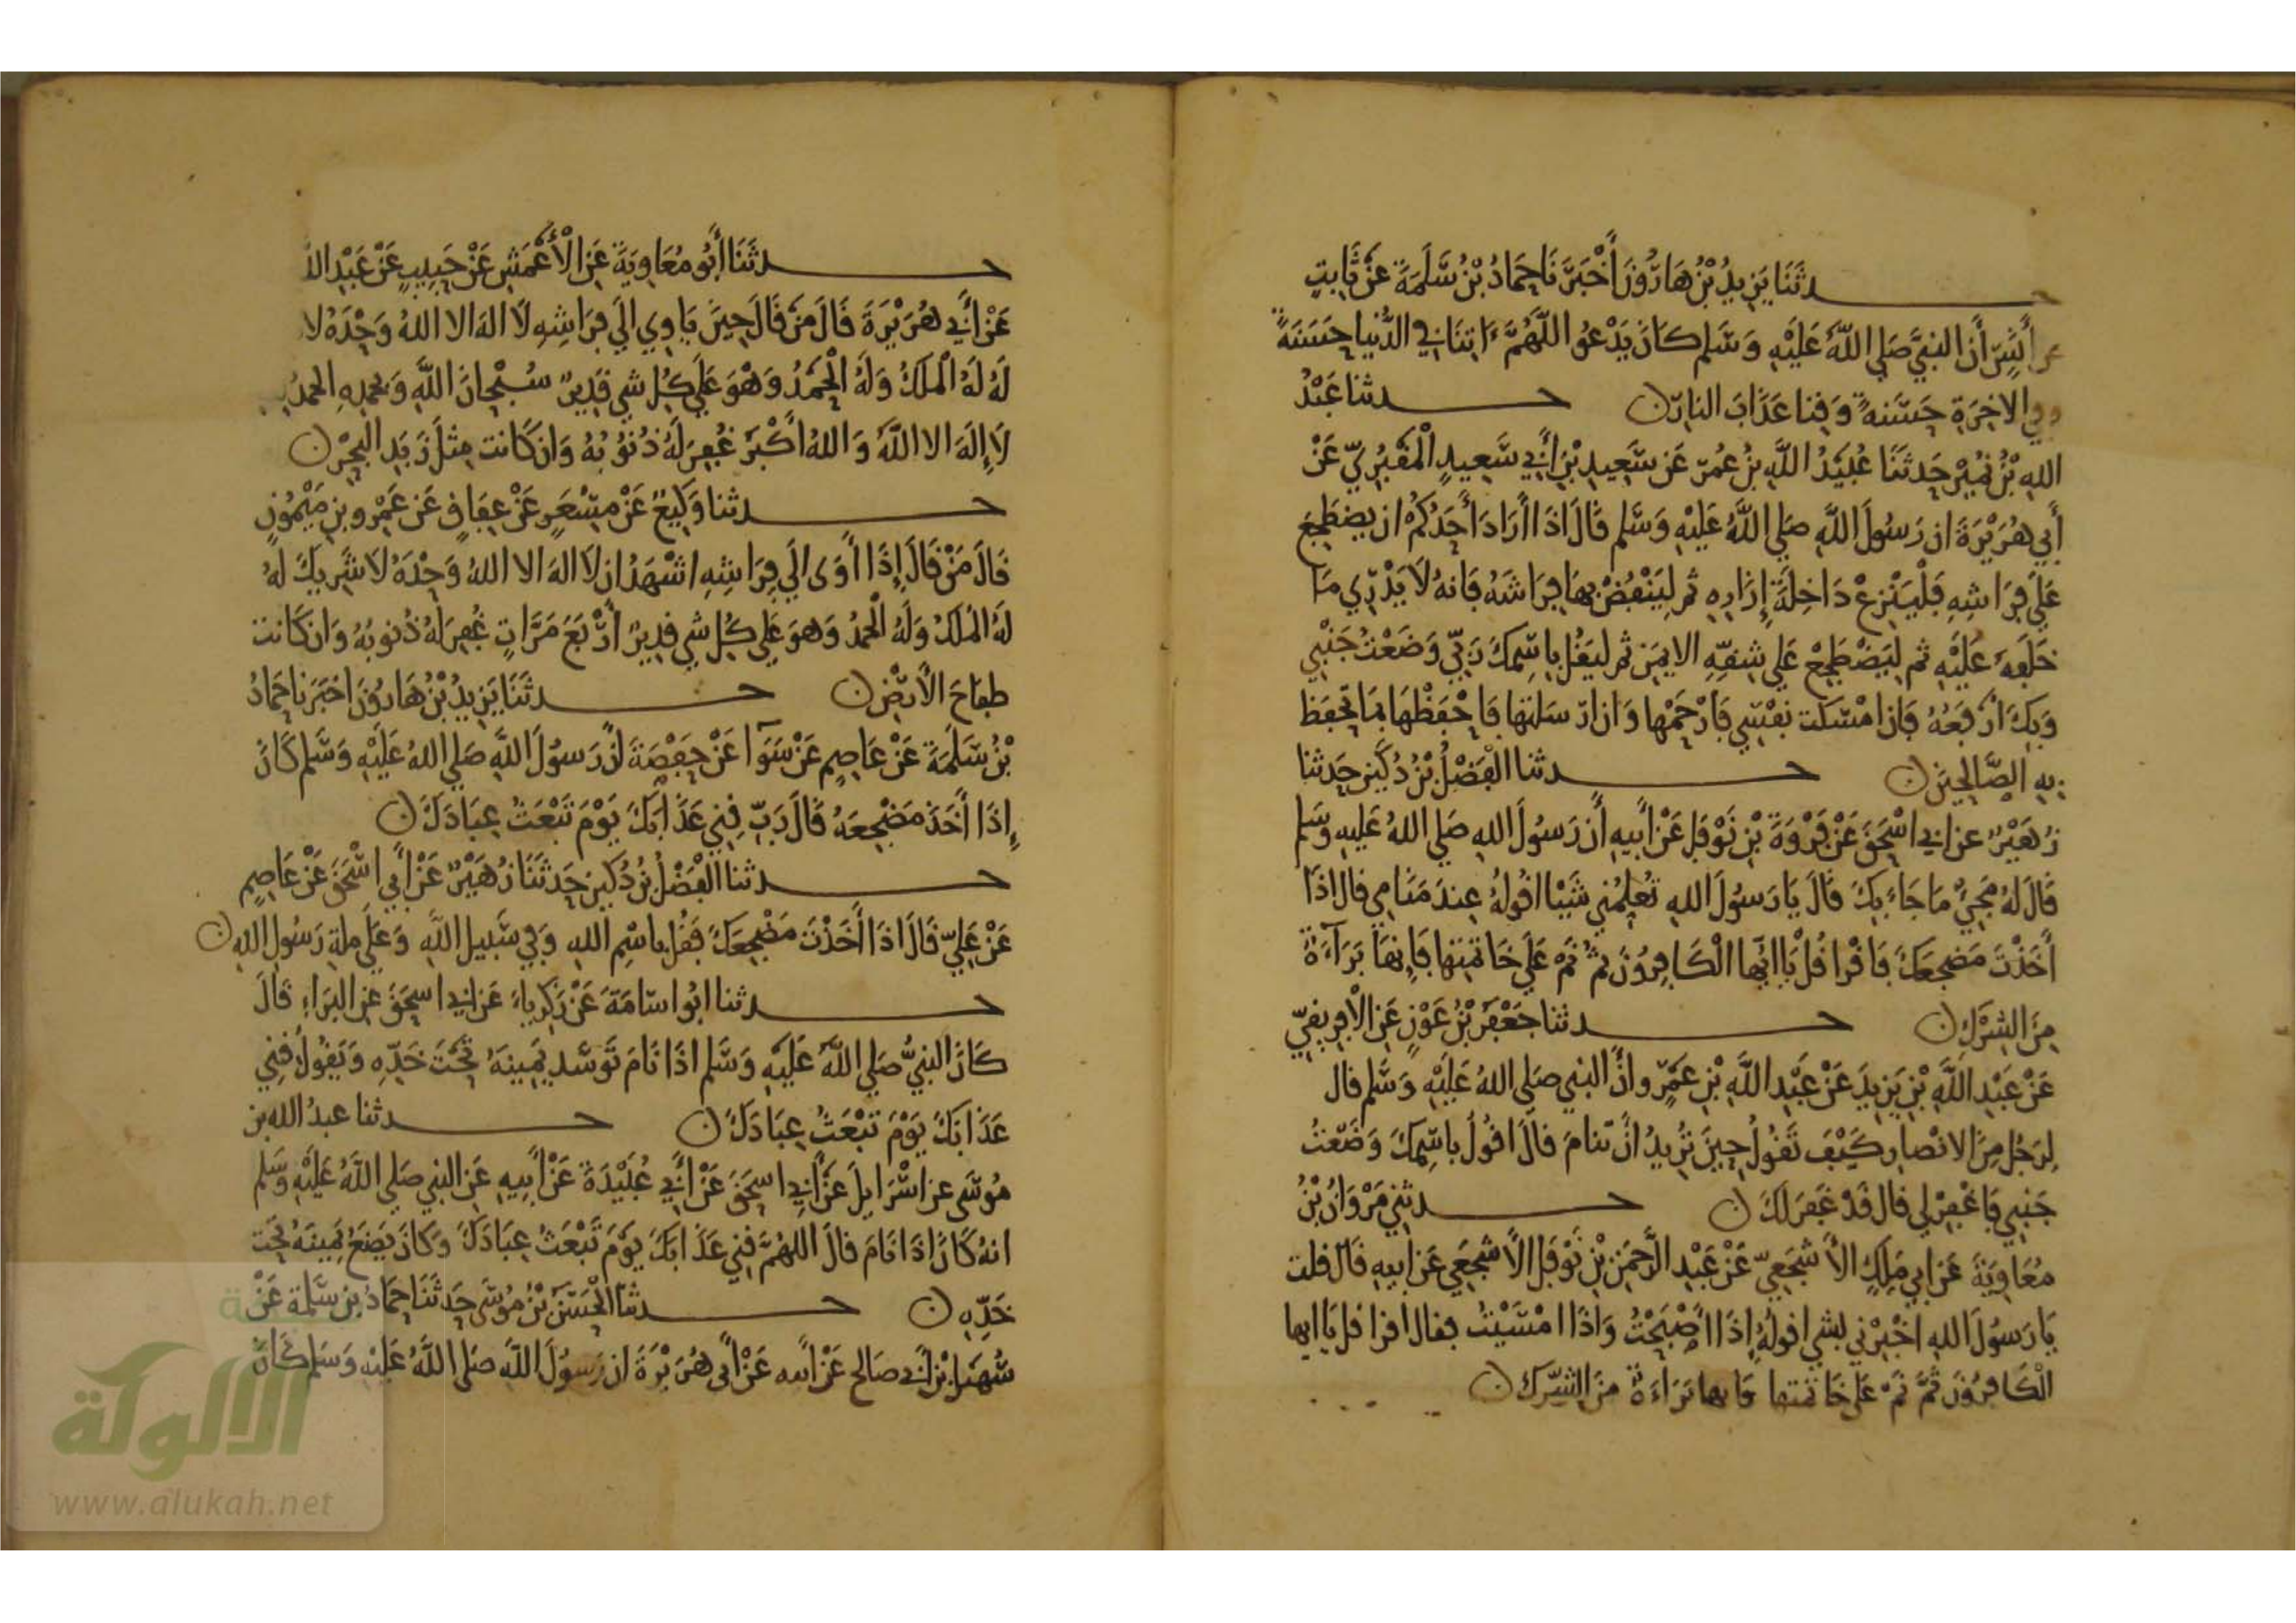 حدثنا يَزِيدُ بْنُ هَارُونَ أَخْبَرَنَا حَمَادُ بْنُ سَلَمَةَ عَنْ ثَابِتٍ
عن أَنَسٍ أَن النبيَّ صَلي اللَّهُ عَلَيْهِ وَسَلم كانَ يَدْعُو اللَّهُمَّ ءَاتِنَا في الدُّنيا حَسَنَةً
وفي الاخِرَةِ حَسَنةً وَقِنا عَذَابَ النارِ ن حدثنا عَبْدُ
اللهِ بْنُ نُمَيْرٍ حَدثَنَا عُبَيْدُ اللَّهِ بنُ عُمَرَ عَن سَعِيدِ بْنِ أَبِي سَعِيدٍ الْمَقْبُرِيِّ عَنْ
أَبِي هُرَيْرَةَ ان رَسُولَ اللَّهِ صَلي اللَّهُ عَلَيْهِ وَسَلم قَالَ اذَا أَرَادَ أَحَدُكُمْ ان يضطَجِعَ
عَلَي فِرَاشِهِ فَلْيَنْزِعْ دَاخِلَةَ إِزَارِهِ ثم لِيَنْفُضْ بِهَا فِرَاشَهُ فَانهُ لَا يَدْرِي مَا
خَلَفَهُ عَلَيْهِ ثم لِيَضْطَجِعْ عَلي شِقِّهِ الايمَنِ ثم ليَقُل بِاسْمِكَ رَبِّي وَضَعْتُ جَنْبِي
وَبِكَ ارْفَعُهُ فَانِ امْسَكْتَ نَفْسِي فَارْحَمْها وَان ارْسَلتها فَاحْفَظْهَا بمَا تَحْفَظ
بِهِ الصَّالِحِينَ ن حدثنا الفَضْلُ بْنُ دُكَيْنٍ حَدثنا
زُهَيْرٌ عن ابي اسْحَقَ عَنْ فَرْوَةَ بْنِ نَوْفَلٍ عَنْ أَبيهِ أَن رَسُولَ اللهِ صَلي اللهُ عَليهِ وَسَلم
قَالَ لَهُ مَجِيٌ مَا جَاءَ بِكَ قَالَ يَا رَسُولَ اللهِ تُعَلِّمُني شَيْا اقُولُهُ عِندَ مَنَامِي قال اذَا
أَخَذْتَ مَضجعَكَ فَاقْرا قُلْ يَا ايُّها الْكَافِرُونَ ثُمَّ نَمْ عَلَي خَاتمتِها فَإِنهَا بَرَآءَةٌ
مِنَ الشِّرْكِ ن حدثنا جَعْفَرُ بْنُ عَوْنٍ عَنِ الْافرِيقِيِّ
عَنْ عَبْدِ اللَّهِ بْنِ يَزِيدَ عَنْ عَبْدِ اللَّهِ بْنِ عَمْرٍو أَنَّ النبي صَلي اللهُ عَلَيْهِ وَسَلم قال
لِرَجُلٍ مِنَ الانْصارِ كَيْفَ تَقُولُ حِينَ تُرِيدُ انْ تنامَ قالَ اقُولُ بِاسْمِكَ وَضَعْتُ
جَنبِي فَاغْفِرْ لي قال قَدْ غَفَرَ لَكَ ن حدثني مَرْوَانُ بْنُ
مُعَاوِيَةَ عَن ابي مَلِكٍ الأَشْجَعِيِّ عَنْ عَبْدِ الرَّحمَنِ بْنِ نَوْفَلٍ الأَشْجَعِي عَن ابيهِ قَالَ قلت
يَا رَسُولَ اللهِ اخْبِرْني بشي اقولُهُ إِذَا أَصْبَحْتُ وَاذَا امْسَيْتُ فقال اقرا قُل يَا ايها
الْكَافِرُونَ ثُمَّ نَمْ عَلَى خَاتمتها فَانها بَرَاءَةٌ مِنَ الشِّرك ن
حدثَنَا أَبُو مُعَاوِيَةَ عَنِ الْأَعْمَشِ عَنْ حَبِيبٍ عَنْ عَبْدِ الله
عَنْ أَبِي هُرَيْرَةَ قَالَ مَنْ قَالَ حِينَ يَاوِي الي فِرَاشِهِ لَا اله الا اللهُ وَحْدَهُ لا
لَهُ لَهُ الْمُلكُ وَلَهُ الْحَمْدُ وَهْوَ عَلَي كُلِ شي قَدِيرٌ سُبْحَانَ اللَّهِ وَبحمدِهِ الحمدُ
لَا إِلَهَ الا اللَّهُ وَاللهُ أَكْبَرُ غُفِرَ لَهُ ذُنُوبُهُ وَان كَانت مِثْلَ زَبَدِ الْبَحْرِ ن
حدثنا وَكِيعٌ عَنْ مِسْعَرٍ عَنْ عِفَاقٍ عَنْ عَمْرِو بنِ مَيْمُونٍ
قَالَ مَنْ قَالَ إِذَا أَوَى الَي فِرَاشِهِ اشْهَدُ ان لَا اله الا اللهُ وَحْدَهُ لَا شَرِيكَ لَهُ
لَهُ المُلكُ وَلَهُ الْحَمْدُ وَهوَ عَلي كُل شي قديرٌ أَرْبَعَ مَرَّاتٍ غُفِرَ لَهُ ذُنوبهُ وَان كَانت
طِفَاحَ الأَرْضِ ن حدثَنَا يَزِيدُ بْنُ هَارُونَ اخْبَرَنَا حَمادُ
بْنُ سَلَمَةَ عَنْ عَاصِمٍ عَنْ سَوَآ عَنْ حَفْصَةَ انَّ رَسُولَ اللَّهِ صَلي اللهُ عَلَيْهِ وَسَلم كَانَ
إِذَا أَخَذَ مَضْجعَهُ قَالَ رَبِّ قِنِي عَذَابَكَ يَوْمَ تَبْعَثُ عِبَادَكَ ن
حدثنا الفَضْلُ بْنُ دُكَيْنٍ حَدثَنَا زُهَيْرٌ عَنْ أَبي اسْحَقَ عَنْ عَاصِمٍ
عَنْ عَلِيٍّ قَالَ اذَا أَخَذْتَ مَضْجعَكَ فَقُل باسْمِ اللهِ وَفي سَبيلِ اللَّهِ وَعَلَى مِلةِ رَسُولِ اللهِ ن
حدثنا ابُو اسَامَةَ عَنْ زَكَرِياءَ عَن ابي اسحَقَ عَنِ البَرَاءِ قَالَ
كَانَ النبيُّ صَلي اللَّهُ عَلَيْهِ وَسَلم اذَا نَامَ تَوَسَّد يَمِينَهُ تَحْتَ خَدِّهِ وَيَقُولُ قِنِي
عَذَابَكَ يَوْمَ تَبْعَثُ عِبَادَكَ ن حدثنا عبدُ الله بن
مُوسَى عن اسْرَايلَ عَنْ أَبي اسحَقَ عَنْ أَبي عُبَيْدَةَ عَنْ أَبِيهِ عَنِ النبي صَلي اللَّهُ عَلَيْهِ وَسَلم
انهُ كَانَ اذَا نَامَ قالَ اللهُمَّ قِنِي عَذَابَكَ يَوْمَ تَبْعَثُ عِبَادَكَ وَكَانَ يَضَعُ يَمِينَهُ تَحْتَ
خَدِّهِ ن حدثنا الْحَسَنُ بْنُ مُوسَى حَدثَنَا حَمَادُ بنِ سَلَمَةَ عَنْ
سُهَيلِ بْنِ أَبي صَالح عَنْ أَبيه عَنْ أَبي هُرَيْرَةَ ان رَسُولَ اللَّهِ صَلى اللَّهُ عَلَيْهِ وَسَلم كَانَ
الألوكة
www.alukah.net